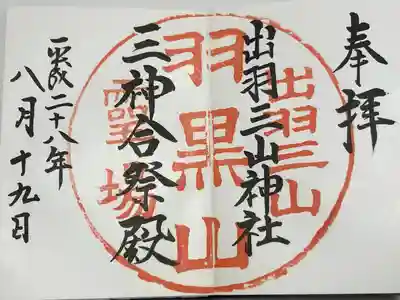 奉拝
出羽三山神社
三神合祭殿
平成二十八年
八月十九日
出羽三山
羽黒山
霊場